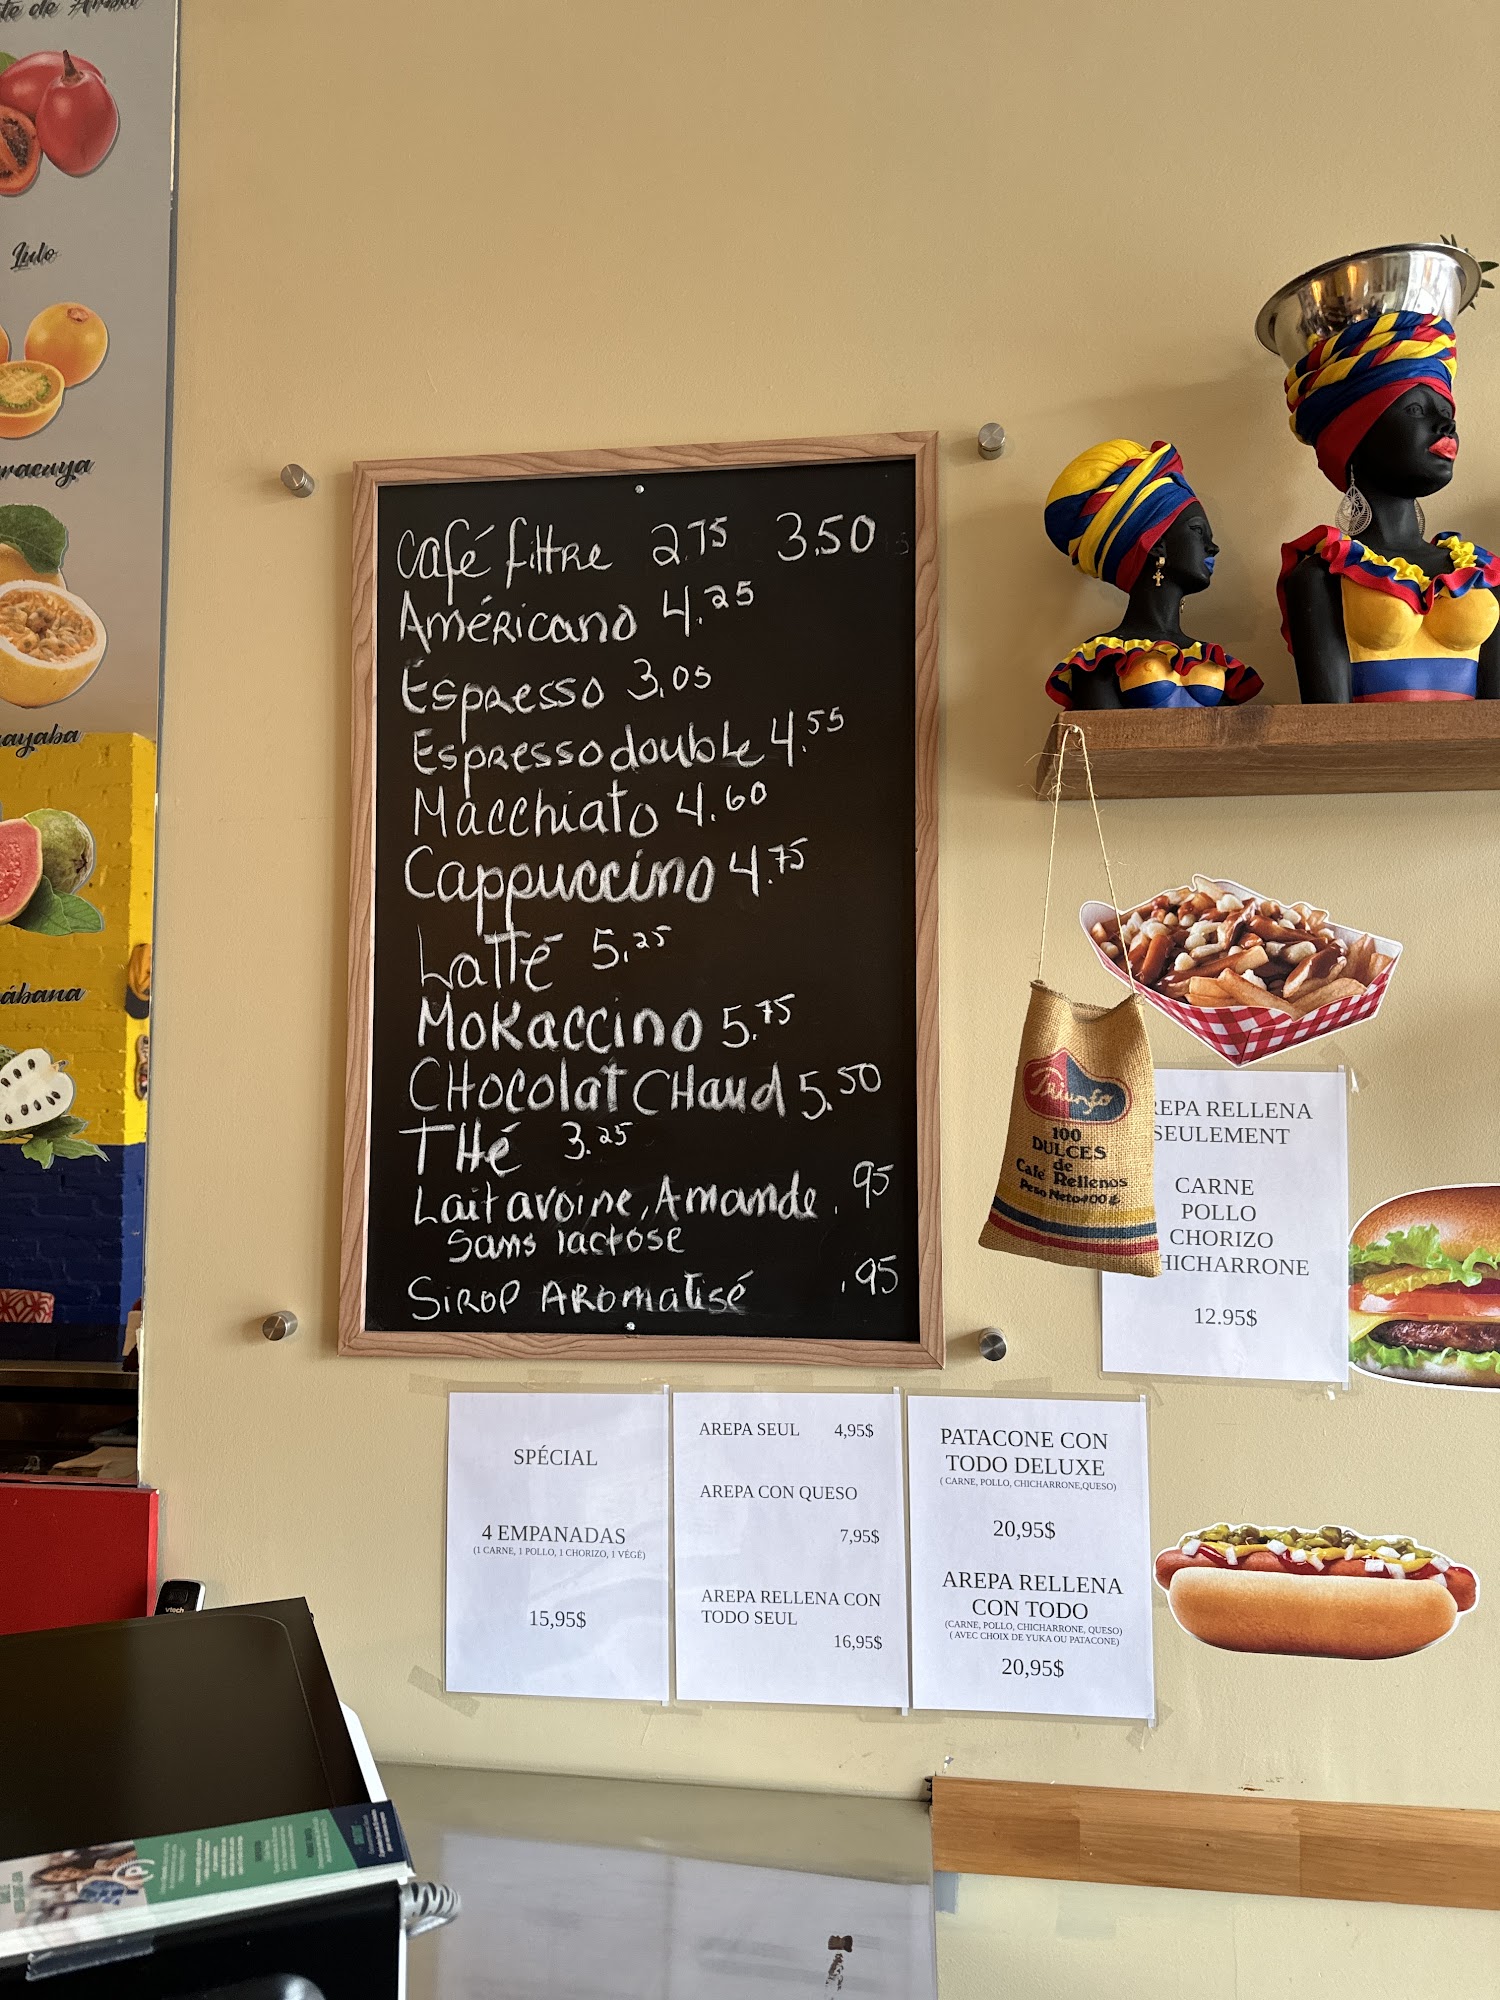 Lulo
Café filtre 2.75 3.50
Américano 4.25
Espresso 3.05
Espresso double 4.55
Macchiato 4.60
Cappuccino 4.75
Latté 5.25
Mokaccino 5.75
CHocolat CHaud 5.50
THé 3.25
Lait avoine, Amande .95
Sans lactose
Sirop Aromatisé .95
Triunfo
100
DULCES
de
Café Rellenos
Peso Neto 400 g
REPA RELLENA
SEULEMENT
CARNE
POLLO
CHORIZO
HICHARRONE
12.95$
SPÉCIAL
4 EMPANADAS
(1 CARNE, 1 POLLO, 1 CHORIZO, 1 VÉGÉ)
15,95$
AREPA SEUL 4,95$
AREPA CON QUESO
7,95$
AREPA RELLENA CON
TODO SEUL
16,95$
PATACONE CON
TODO DELUXE
( CARNE, POLLO, CHICHARRONE,QUESO)
20,95$
AREPA RELLENA
CON TODO
(CARNE, POLLO, CHICHARRONE, QUESO)
( AVEC CHOIX DE YUKA OU PATACONE)
20,95$
racuya
ayaba
ábana
vtech